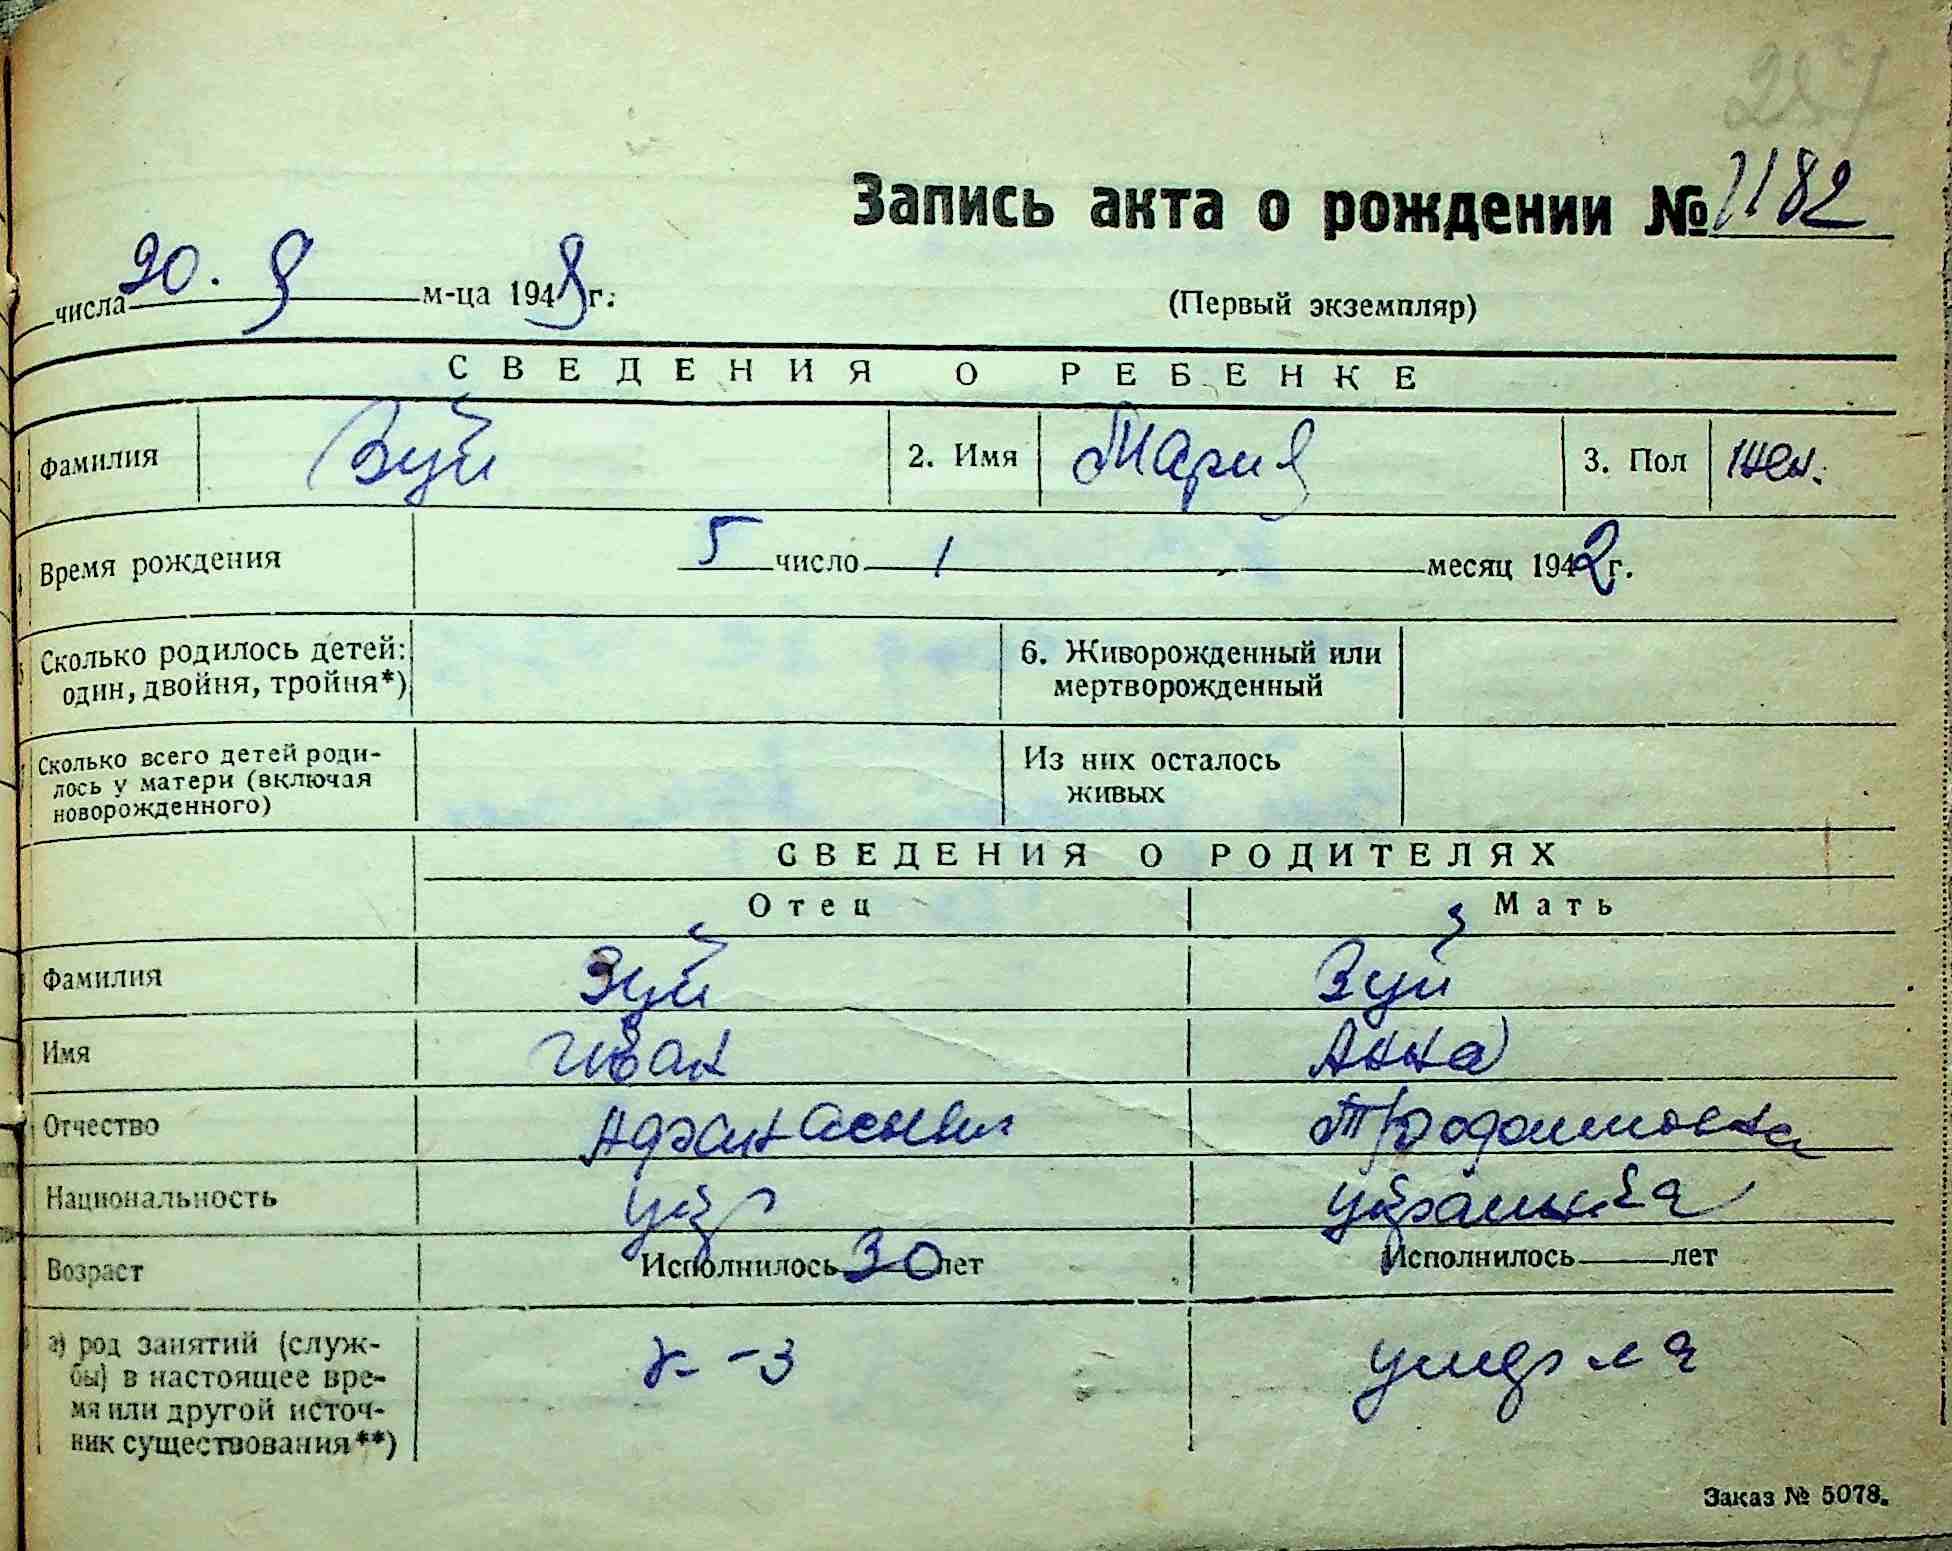 Запись акта о рождении № 1182
числа 20. 9 м-ца 1948 г.
(Первый экземпляр)
СВЕДЕНИЯ О РЕБЕНКЕ
Фамилия Зуй 2. Имя Мария 3. Пол жен.
Время рождения 5 число 1 месяц 1942 г.
Сколько родилось детей: 6. Живорожденный или
один, двойня, тройня*) мертворожденный
Сколько всего детей роди- Из них осталось
лось у матери (включая живых
новорожденного)
СВЕДЕНИЯ О РОДИТЕЛЯХ
Отец Мать
Фамилия Зуй Зуй
Имя Иван Анна
Отчество Афанасьевич
Национальность укр украинка
Возраст Исполнилось 30 лет Исполнилось лет
а) род занятий (служ-
бы) в настоящее вре- к-з умерла
мя или другой источ-
ник существования**)
Заказ № 5078.